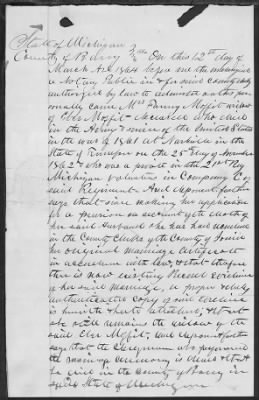 State of Michigan
County of Barry } ss On this 12th day of
March A.D. 1864 before me the undersigned
a Notary Public in & for said county duly
authorized by law to administer oaths per-
sonally came Mrs Fanny Moffit widow
of Eber Moffit deceased who died
in the Army & service of the United States
in the war of 1861 at Nashville in the
State of Tennessee on the 25th day of
1862 who was a private in the 21st Reg
Michigan volunteers in Company
said Regiment And deponent further
says that since making her application
for a pension on account of the death of
her said husband she has had
in the County Clerks of the County of Ionia
her original marriage certificate
in accordance with law, & that
there is now existing Record evidence
of her said marriage, a proper & duly
authenticated copy of said evidence
is herewith attached, & that
she still remains the widow of the
said Eber Moffit, And deponent further
says that the Clergyman who performed
the marriage ceremony is &
he died in the County of Barry in
said State of Michigan